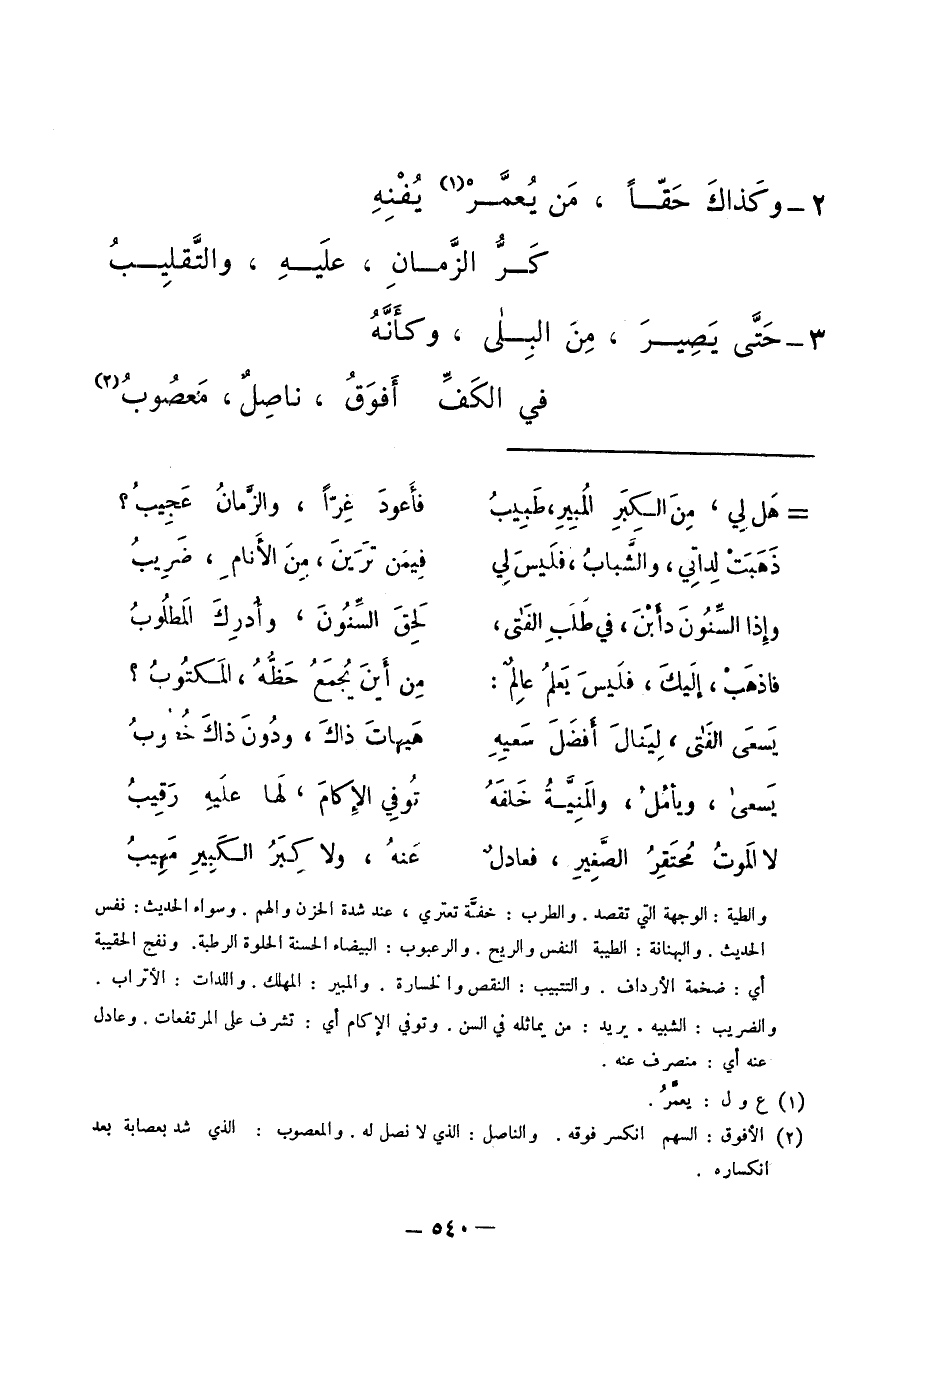 ٢ ــ وكَذاكَ حَقّـــاً ، مَن يُعمَّـــرْ(١) يُفْنِهِ
كَـــرُّ الزَّمـــانِ ، علَيـــهِ ، والتَّقلِيـــبُ
٣ ــ حَتَّى يَصِيـــرَ ، مِنَ البِـــلٰى ، وكأَنَّهُ
في الكَفِّ أَفوَقُ ، ناصِلٌ ، مَعصُوبُ(٢)
= هَل لِي ، مِنَ الـكِبَرِ المُبِيرِ، طَبِيبُ فأَعودَ غِرّاً ، والزَّمانُ عَجِيبُ ؟
ذَهَبَتْ لِداتِي ، والشَّبابُ ، فلَيسَ لِي فِيمَن تَرَينَ ، مِنَ الأَنامِ ، ضَرِيبُ
وإِذا السِّنُونَ دأَبْنَ ، في طَلَبِ الفَتٰى ، لَحِقَ السِّنُونَ ، وأُدرِكَ المَطلُوبُ
فاذهَبْ ، إِلَيكَ ، فلَيسَ يَعلَمُ عالِمٌ : مِن أَينَ يُجمَعُ حَظُّهُ ، المَـكتُوبُ ؟
يَسعَى الفَتٰى ، لِيَنالَ أَفضَلَ سَعيِهِ هَيهاتَ ذاكَ ، ودُونَ ذاكَ خُطُوبُ
يَسعىٰ ، ويأمُلُ ، والمَنِيَّـةُ خَلفَهُ تُوفِي الإِكامَ ، لَهـا علَيهِ رَقِيبُ
لا المَوتُ مُحتَقِرُ الصَّغِيرِ ، فعادلٌ عَنهُ ، ولا كِبَرُ الـكَبِيرِ مَهِيبُ
والطية : الوجهة التي تقصد . والطرب : خفَّة تعتري ، عند شدة الحزن والهم . وسواء الحديث : نفس
الحديث . والبهنانة : الطيبة النفس والريح . والرعبوب : البيضاء الحسنة الحلوة الرطبة. ونفج الحقيبة
أي : ضخمة الأرداف . والتتبيب : النقص والخسارة . والمبير : المهلك . واللدات : الأتراب .
والضريب : الشبيه . يريد : من يماثله في السن . وتوفي الإكام أي : تشرف على المرتفعات . وعادل
عنه أي : منصرف عنه .
(١) ع و ل : يعمَّرُ .
(٢) الأفوق : السهم انكسر فوقه . والناصل : الذي لا نصل له . والمعصوب : الذي شد بعصابة بعد
انكساره .
— ٥٤٠ —